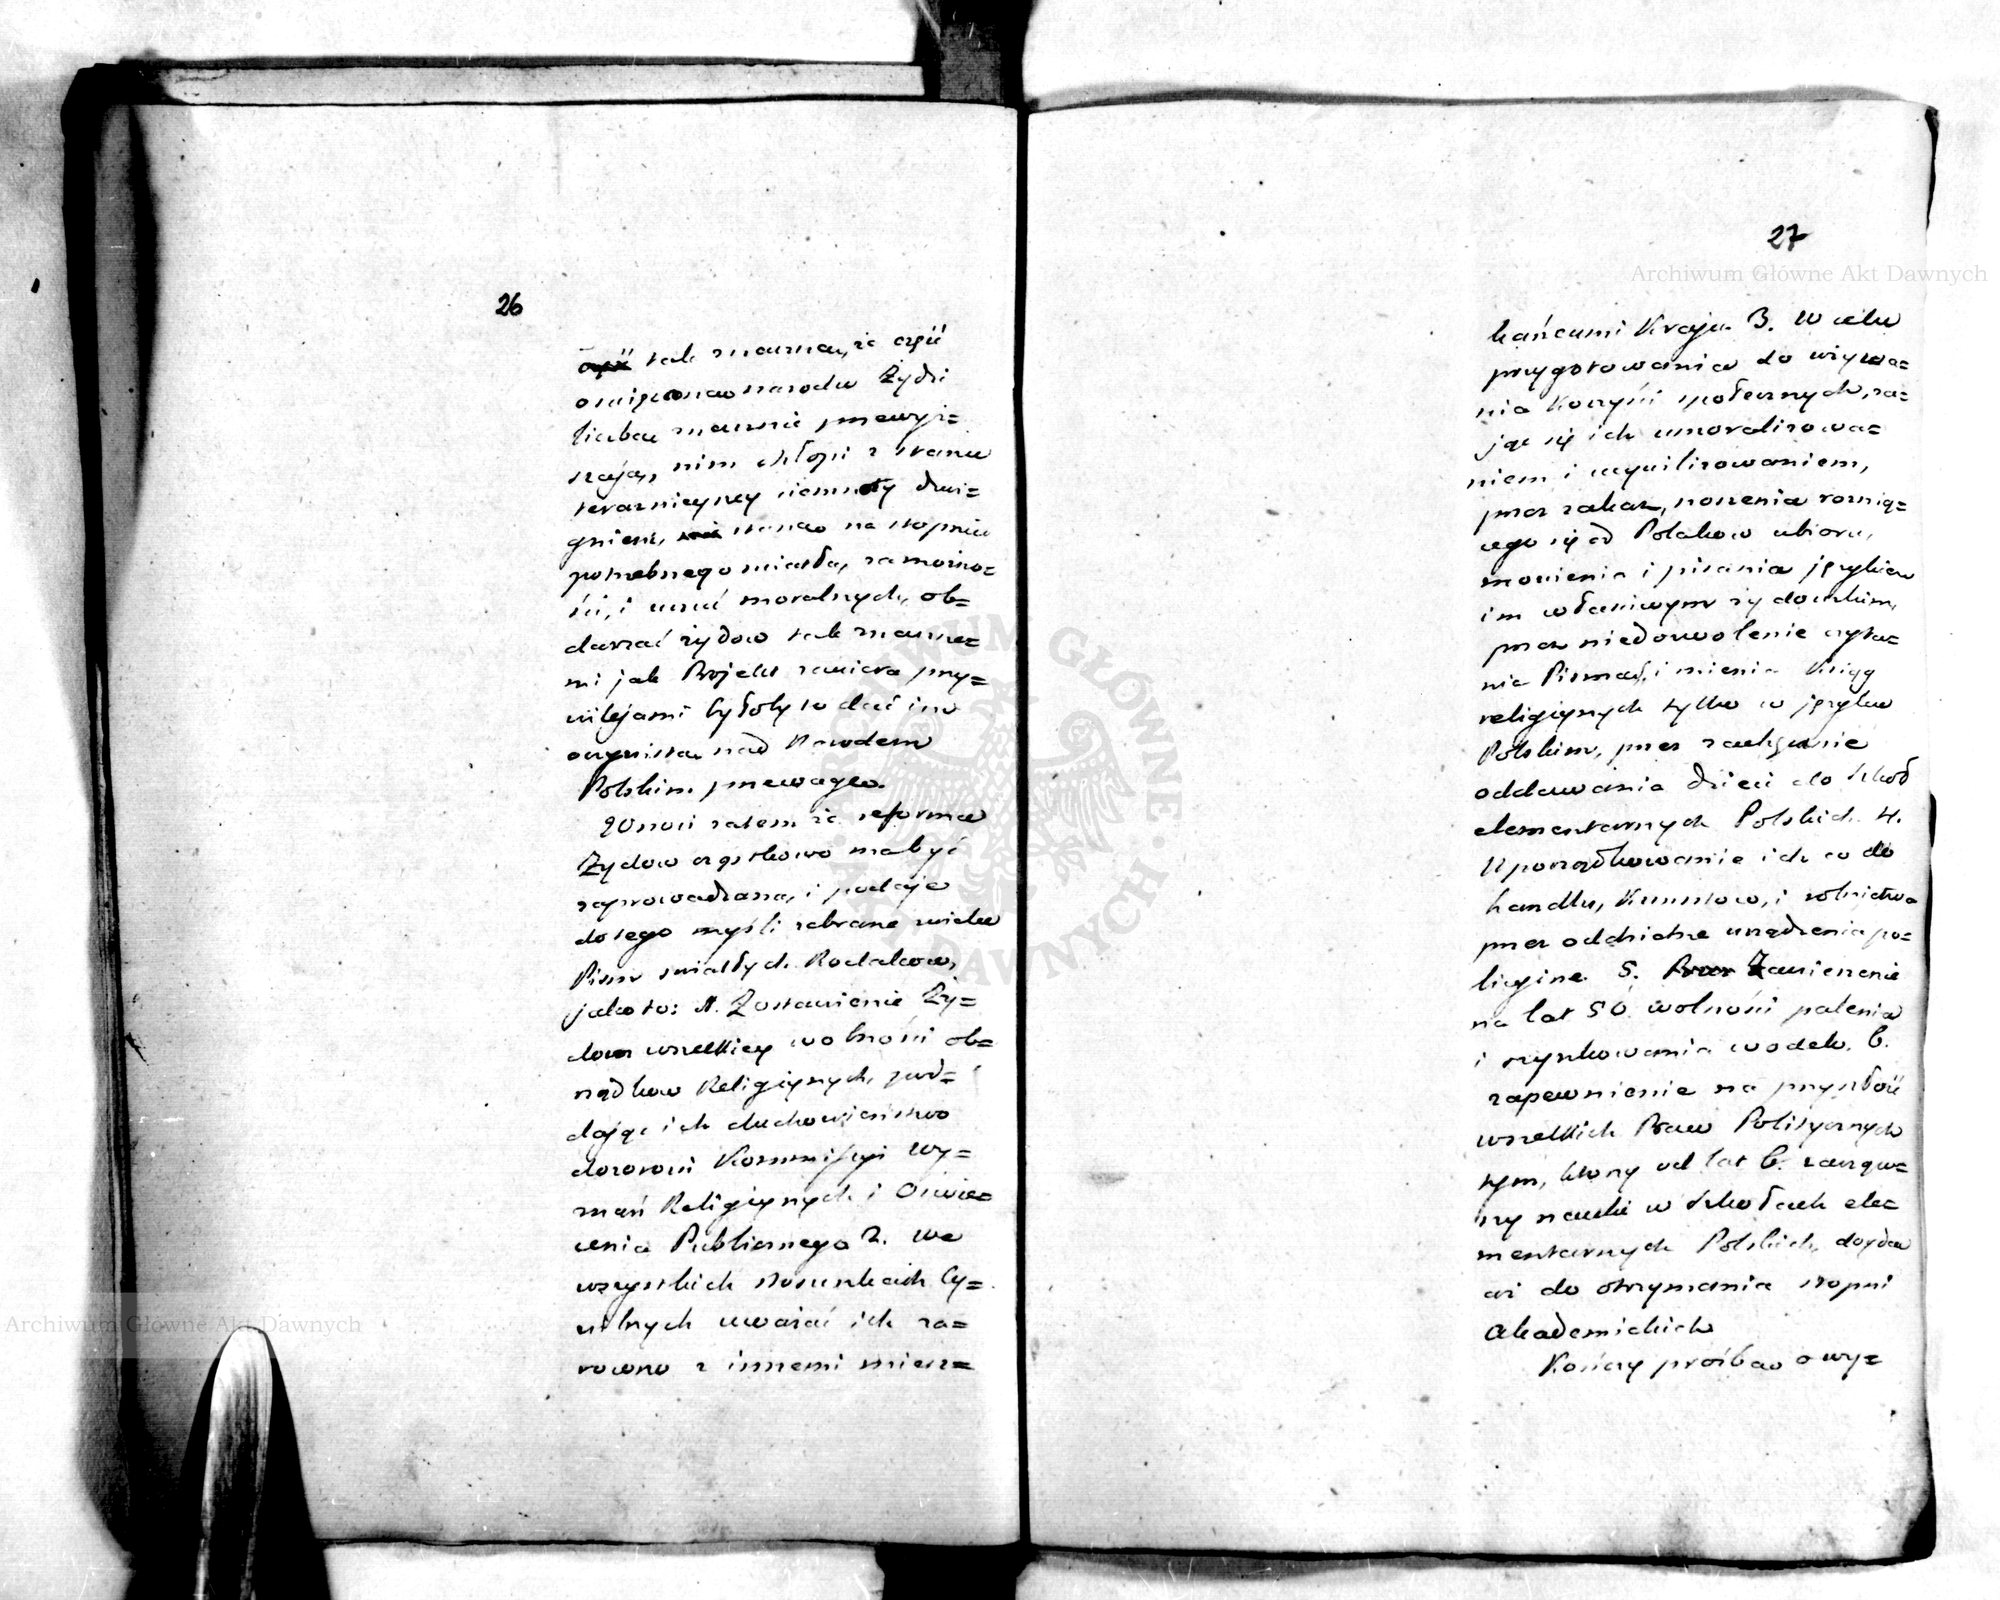 26
tak znaczna, że część
oświeconą narodu Żydzi
liczbą znacznie przewyż=
szają, nim chłopi z stanu
teraznieyszey ciemnoty dzwi=
gnieni, staną na stopniu
potrzebnego światła, zamożno=
ści, i uczuć moralnych, ob=
darzać żydow tak znaczne=
mi jak Projekt zawiera przy=
wilejami byłoby to dać im
oczywistą nad Narodem
Polskim przewagę.
Wnosi zatem że reforma
Żydow cząstkowo ma być
zaprowadzana, i podaje
do tego myśli zebrane z wielu
Pism światłych Rodakow,
jako to: 1. Zostawienie Ży=
dom wszelkiey wolności ob=
rządkow Religiynych, pod=
dając ich duchowieństwo
dozorowi Kommissyi Wy=
znań Religiynych i Oświe=
cenia Publicznego 2. we
wszystkich stosunkach Cy=
wilnych uważać ich za=
rowno z innemi miesz=
27
Archiwum Główne Akt Dawnych
kańcami Kraju. 3. W celu
przygotowania do używa=
nia Korzyści społecznych, za=
jąć się ich umoralizowa=
niem i cywilizowaniem,
przez zakaz, noszenia rożnią=
cego się od Polakow ubioru,
mowienia i pisania językiem
im właściwym żydowskim,
przez niedozwolenie czyta=
nia Pisma, i mienia Xiąg
religiynych tylko w języku
Polskim, przez zachęcanie
oddawania dzieci do Szkoł
elementarnych Polskich. 4.
Uporządkowanie ich co do
handlu, Kunsztow, i rolnictwa
przez oddzielne urządzenia po=
licyine. 5. Zawieszenie
na lat 50. wolności palenia
i szynkowania wodek. 6.
zapewnienie na przyszłość
wszelkich Praw Politycznych
tym, ktorzy od lat 6. zacząw=
szy nauki w Szkołach ele=
mentarnych Polskich, doydą
aż do otrzymania stopni
Akademickich
Kończy prośbą o wy=
Archiwum Główne Akt Dawnych
ARCHIWUM GŁÓWNE AKT DAWNYCH